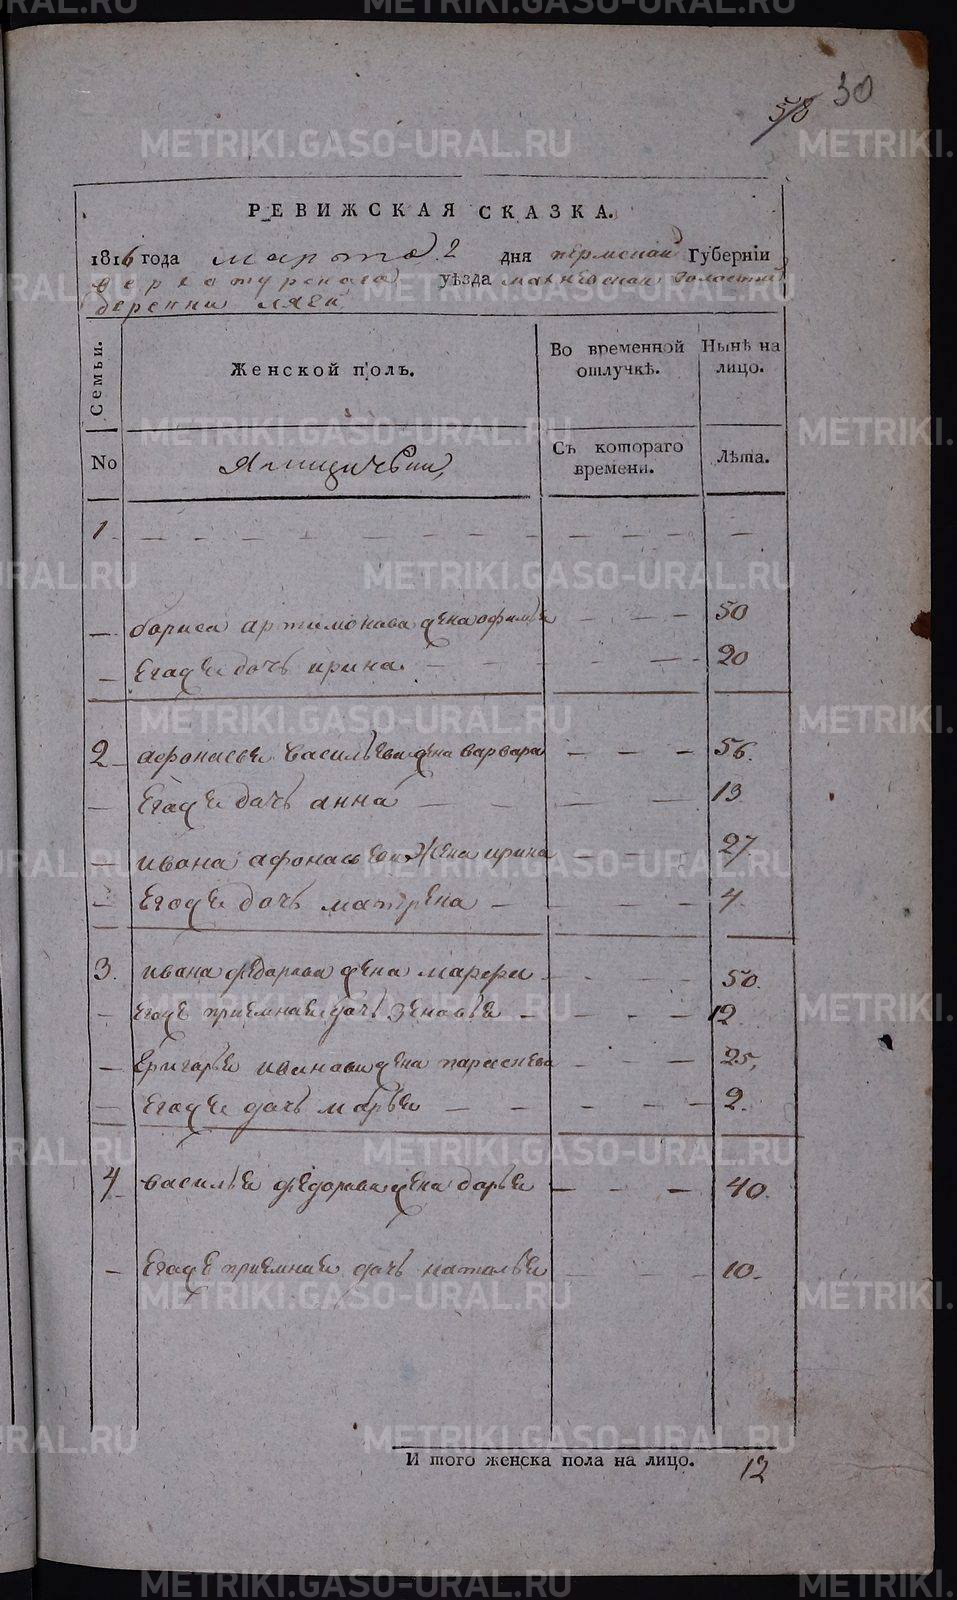 58 30
РЕВИЖСКАЯ СКАЗКА.
1816 года марта 2 дня пермской Губерніи
верхотурскаго уѣзда махневской волости
деревни ляги
Семьи.
Женской полъ.
Во временной отлучкѣ.
Нынѣ на лицо.
No
Ямщичьи
Съ котораго времени.
Лѣта.
1
бориса артимонова жена офимья 50
Егоже дочь ирина 20
2 афонасья васильева жена варвара 56.
Егоже дочь анна 13
ивана афонасьева жена ирина 27.
Егоже дочь матрена 4
3. ивана федорова жена марфа 50.
Егоже приемная дочь зеновья 12
Григорья иванова жена парасковья 25,
Егоже дочь марья 2.
4 василья федорова жена дарья 40.
Егоже приемная дочь наталья 10.
И того женска пола на лицо. 12
METRIKI.GASO-URAL.RU